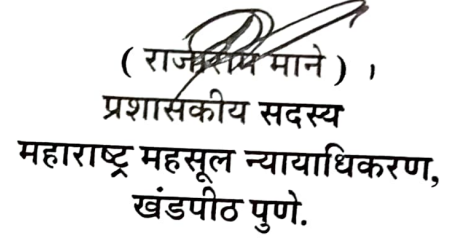 ( राजाराम माने ) ।
प्रशासकीय सदस्य
महाराष्ट्र महसूल न्यायाधिकरण,
खंडपीठ पुणे.